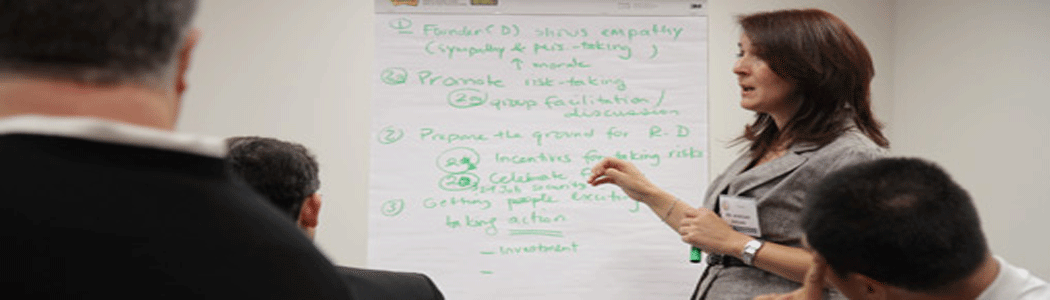 ① Founder (D) shows empathy
(sympathy & pers.-taking)
↑ morale
Promote risk-taking
group facilitation /
discussion
② Prepare the ground for R-D
Incentives for taking risks
Celebrate
Job security
③ Getting people exciting
taking action
– Investment
–